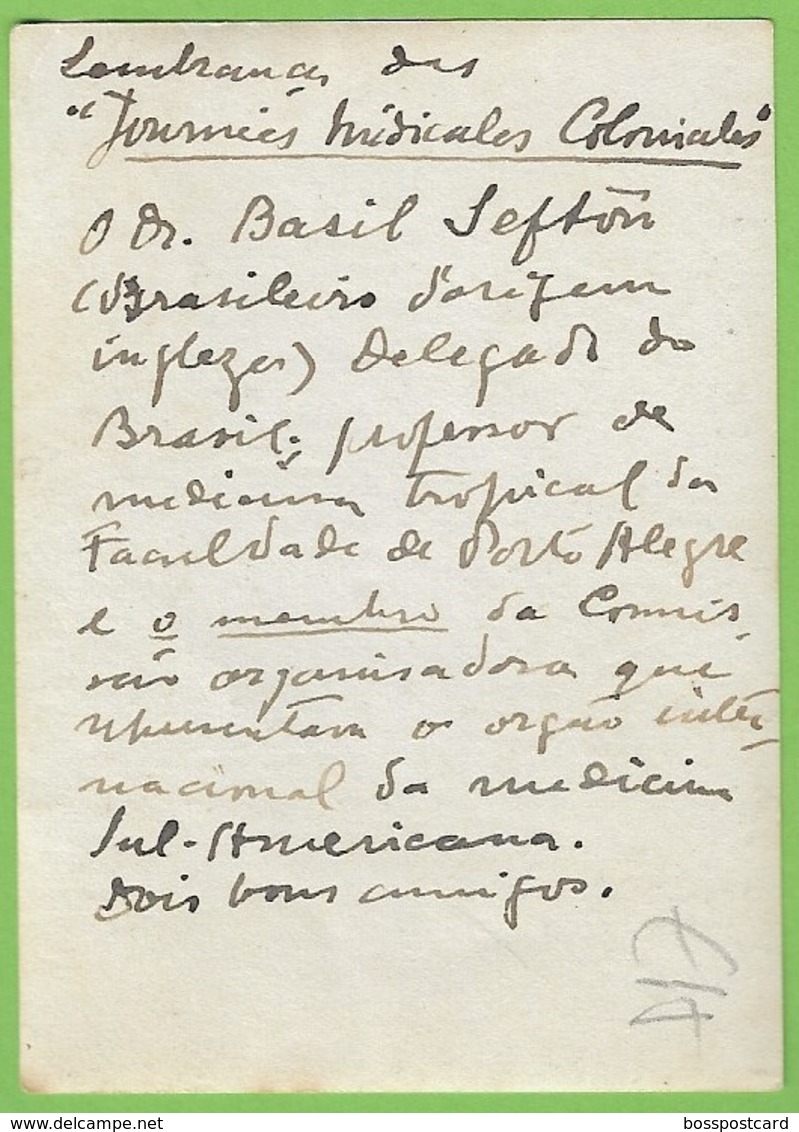 Lembranças das
"Journeés Médicales Coloniales"
O Dr. Basil Sefton
(Brasileiro d'origem
ingleza) Delegado do
Brasil; professor de
medicina tropical da
Faculdade de Porto Alegre
e o membro da Comis-
são organisadora que
representava o orgão inter-
nacional da medicina
Sul-Americana.
Dois bons amigos.
417
www.delcampe.net
bosspostcard